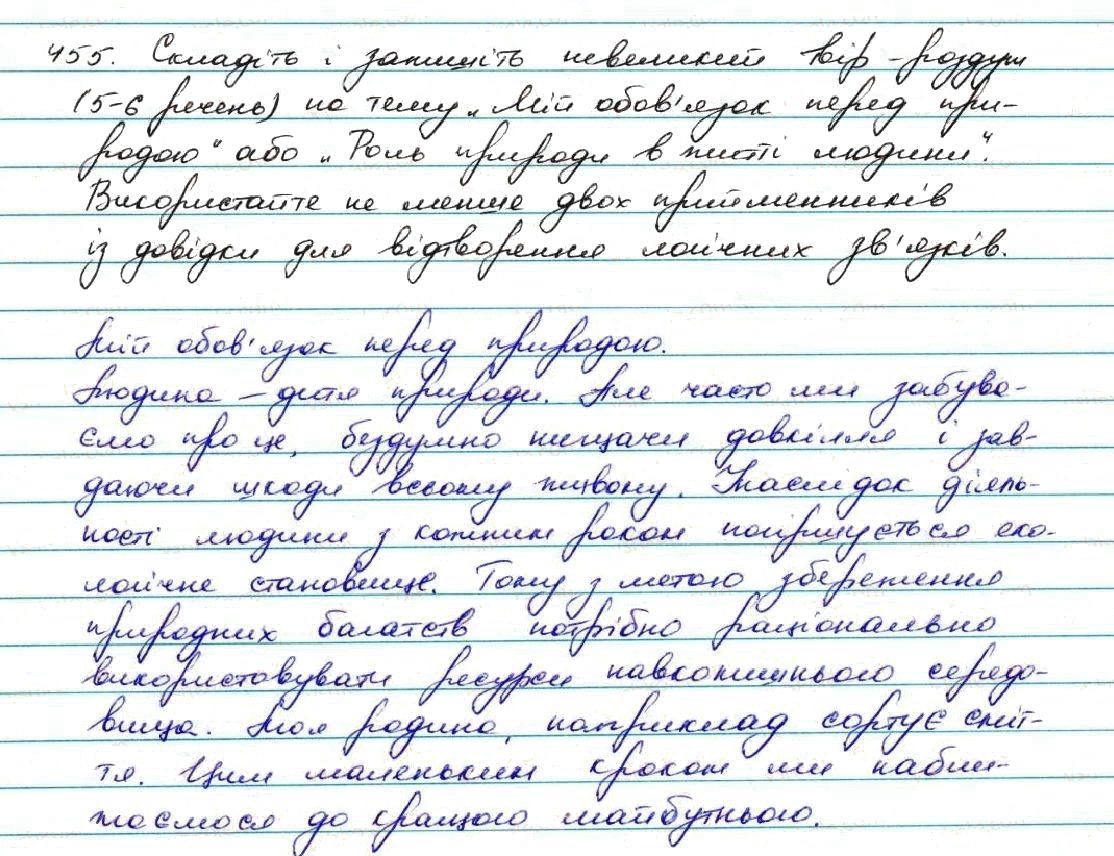 455. Складіть і запишіть невеликий твір-роздум
(5-6 речень) на тему „Мій обов'язок перед при-
родою" або „Роль природи в житті людини".
Використайте не менше двох прийменників
із довідки для відтворення логічних зв'язків.
Мій обов'язок перед природою.
Людина – дитя природи. Але часто ми забува-
ємо про це, бездумно нищачи довкілля і зав-
даючи шкоди всьому живому. Внаслідок діяль-
ності людини з кожним роком погіршується еко-
логічне становище. Тому з метою збереження
природних багатств потрібно раціонально
використовувати ресурси навколишнього середо-
вища. Моя родина, наприклад сортує сміт-
тя. Цим маленьким кроком ми набли-
жаємося до кращого майбутнього.